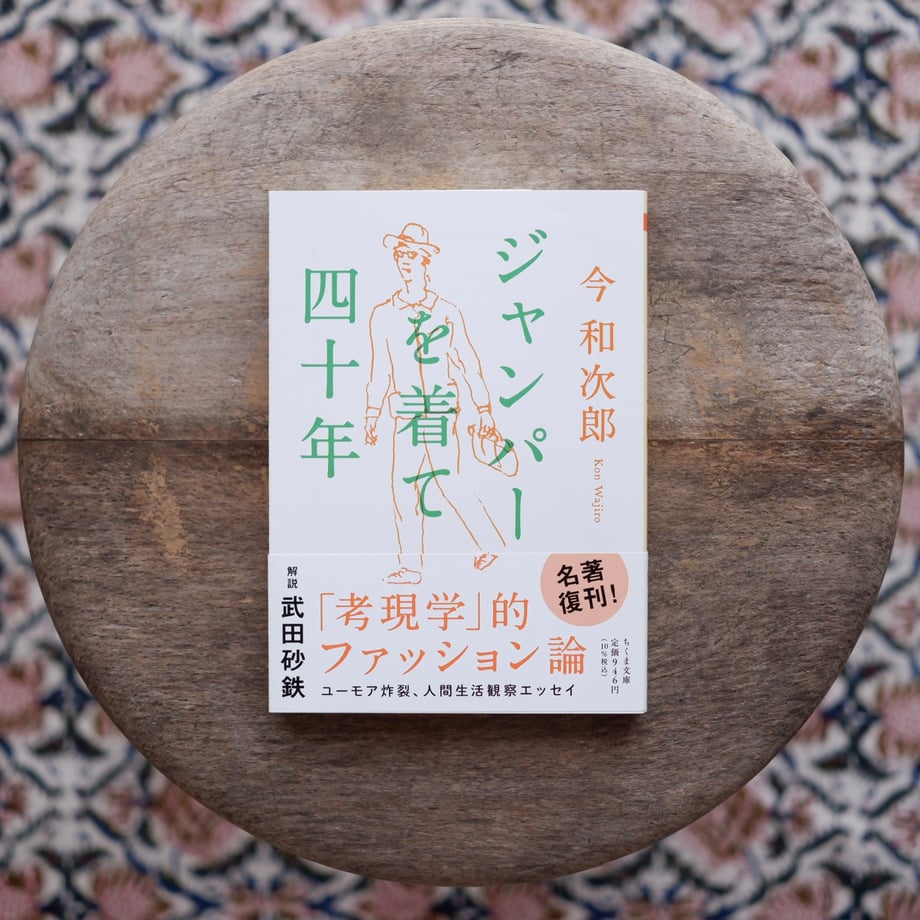 ジャンパー
を着て
四十年
今 和次郎
Kon Wajiro
名著
復刊!
「考現学」的
ファッション論
ユーモア炸裂、人間生活観察エッセイ
解説 武田砂鉄
ちくま文庫
定価946円
(10%税込)